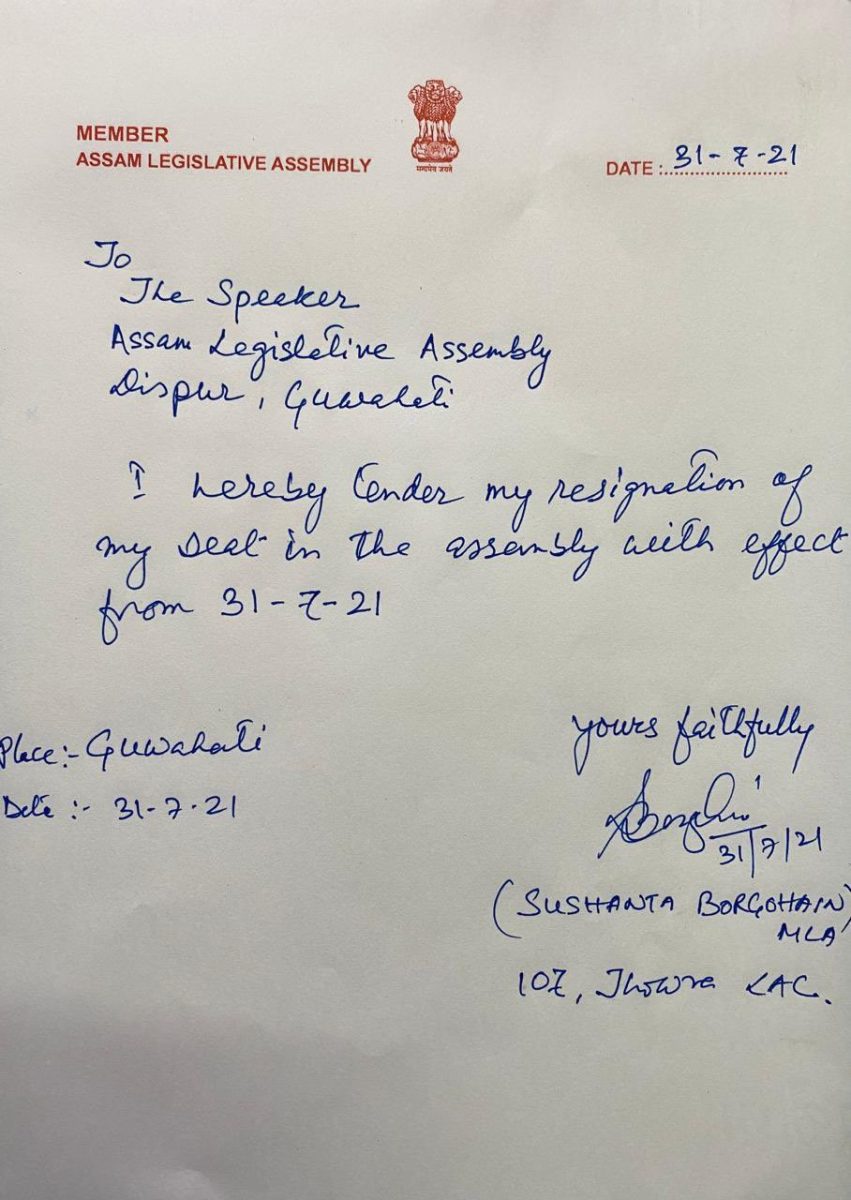 MEMBER
ASSAM LEGISLATIVE ASSEMBLY
सत्यमेव जयते
DATE :
31-7-21
To
The Speaker
Assam Legislative Assembly
Dispur, Guwahati
I hereby tender my resignation of
my seat in the assembly with effect
from 31-7-21
Place:- Guwahati
Date :- 31-7-21
yours faithfully
31/7/21
(SUSHANTA BORGOHAIN)
MLA
107, Thowra LAC.